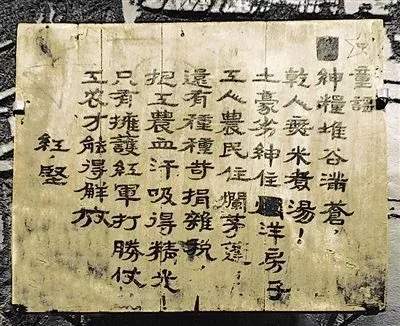 童謠
紳糧堆谷滿蒼，
乾人無米煮湯！
土豪劣紳住洋房子
工人農民住爛茅蓬，
還有種種苛捐雜稅，
把工農血汗吸得精光
只有擁護紅軍打勝仗，
工农才能得解放
紅.堅